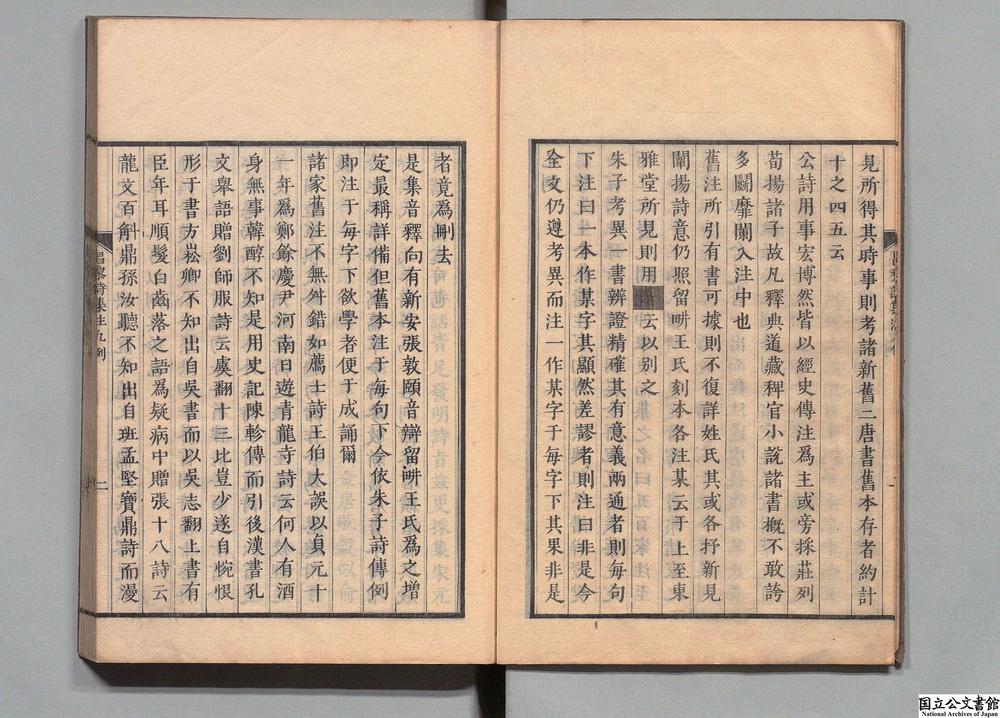 見所得其時事則考諸新舊二唐書舊本存者約計
十之四五云
公詩用事宏博然皆以經史傳注爲主或旁採莊列
荀揚諸子故凡釋典道藏稗官小說諸書概不敢誇
多鬭靡闌入注中也
舊注所引有書可據則不復詳姓氏其或各抒新見
闡揚詩意仍照留畊王氏刻本各注某云于上至東
雅堂所見則用云以別之
朱子考異一書辨證精確其有意義兩通者則每句
下注曰一本作某字其顯然差謬者則注曰非是今
全文仍遵考異而注一作某字于每字下其果非是
者竟爲刪去
是集音釋向有新安張敦頤音辯留畊王氏爲之增
定最稱詳備但舊本注于每句下今依朱子詩傳例
即注于每字下欲學者便于成誦爾
諸家舊注不無舛錯如薦士詩王伯大誤以貞元十
一年爲鄭餘慶尹河南日遊青龍寺詩云何人有酒
身無事韓醇不知是用史記陳軫傳而引後漢書孔
文舉語贈劉師服詩云虞翻十三比豈少遂自惋恨
形于書方崧卿不知出自吳書而以吳志翻上書有
臣年耳順髮白齒落之語爲疑病中贈張十八詩云
龍文百斛鼎孫汝聽不知出自班孟堅寶鼎詩而漫
昌黎詩集注凡例
二
国立公文書館
National Archives of Japan